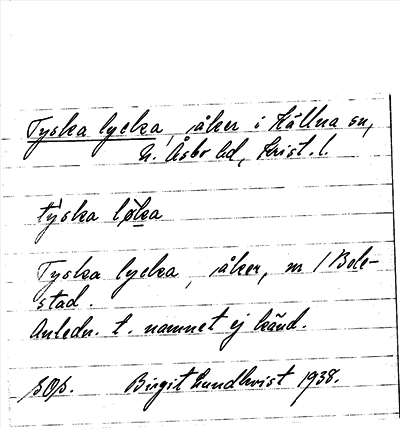 Tyska lycka, åker i Källna sn,
N. Åsbo hd, Krist. l.
týska lø̀ka
Tyska lycka, åker, nr 1 Bole-
stad.
Anledn. t. namnet ej känd.
Birgit Lundkvist 1938.